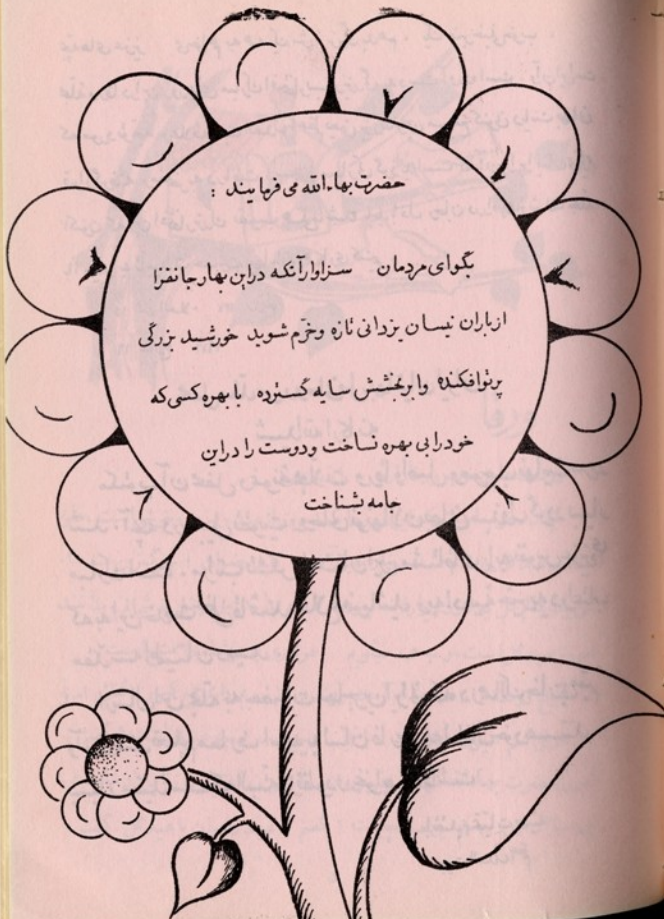 حضرت بهاءالله می فرمایند :
بگو ای مردمان سزاوار آنکه در این بهار جانفزا
از باران نیسان یزدانی تازه و خرّم شوید خورشید بزرگی
پرتو افکنده و ابر بخشش سایه گسترده با بهره کسی که
خود را بی بهره نساخت و دوست را در این
جامه بشناخت